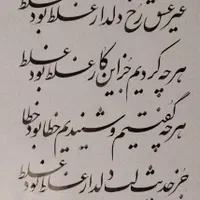 غیر عشق رخ دلدار غلط بود غلط
هر چه کردیم جز این کار غلط بود غلط
هر چه گفتیم و شنیدیم خطا بود خطا
جز حدیث لب دلدار غلط بود غلط